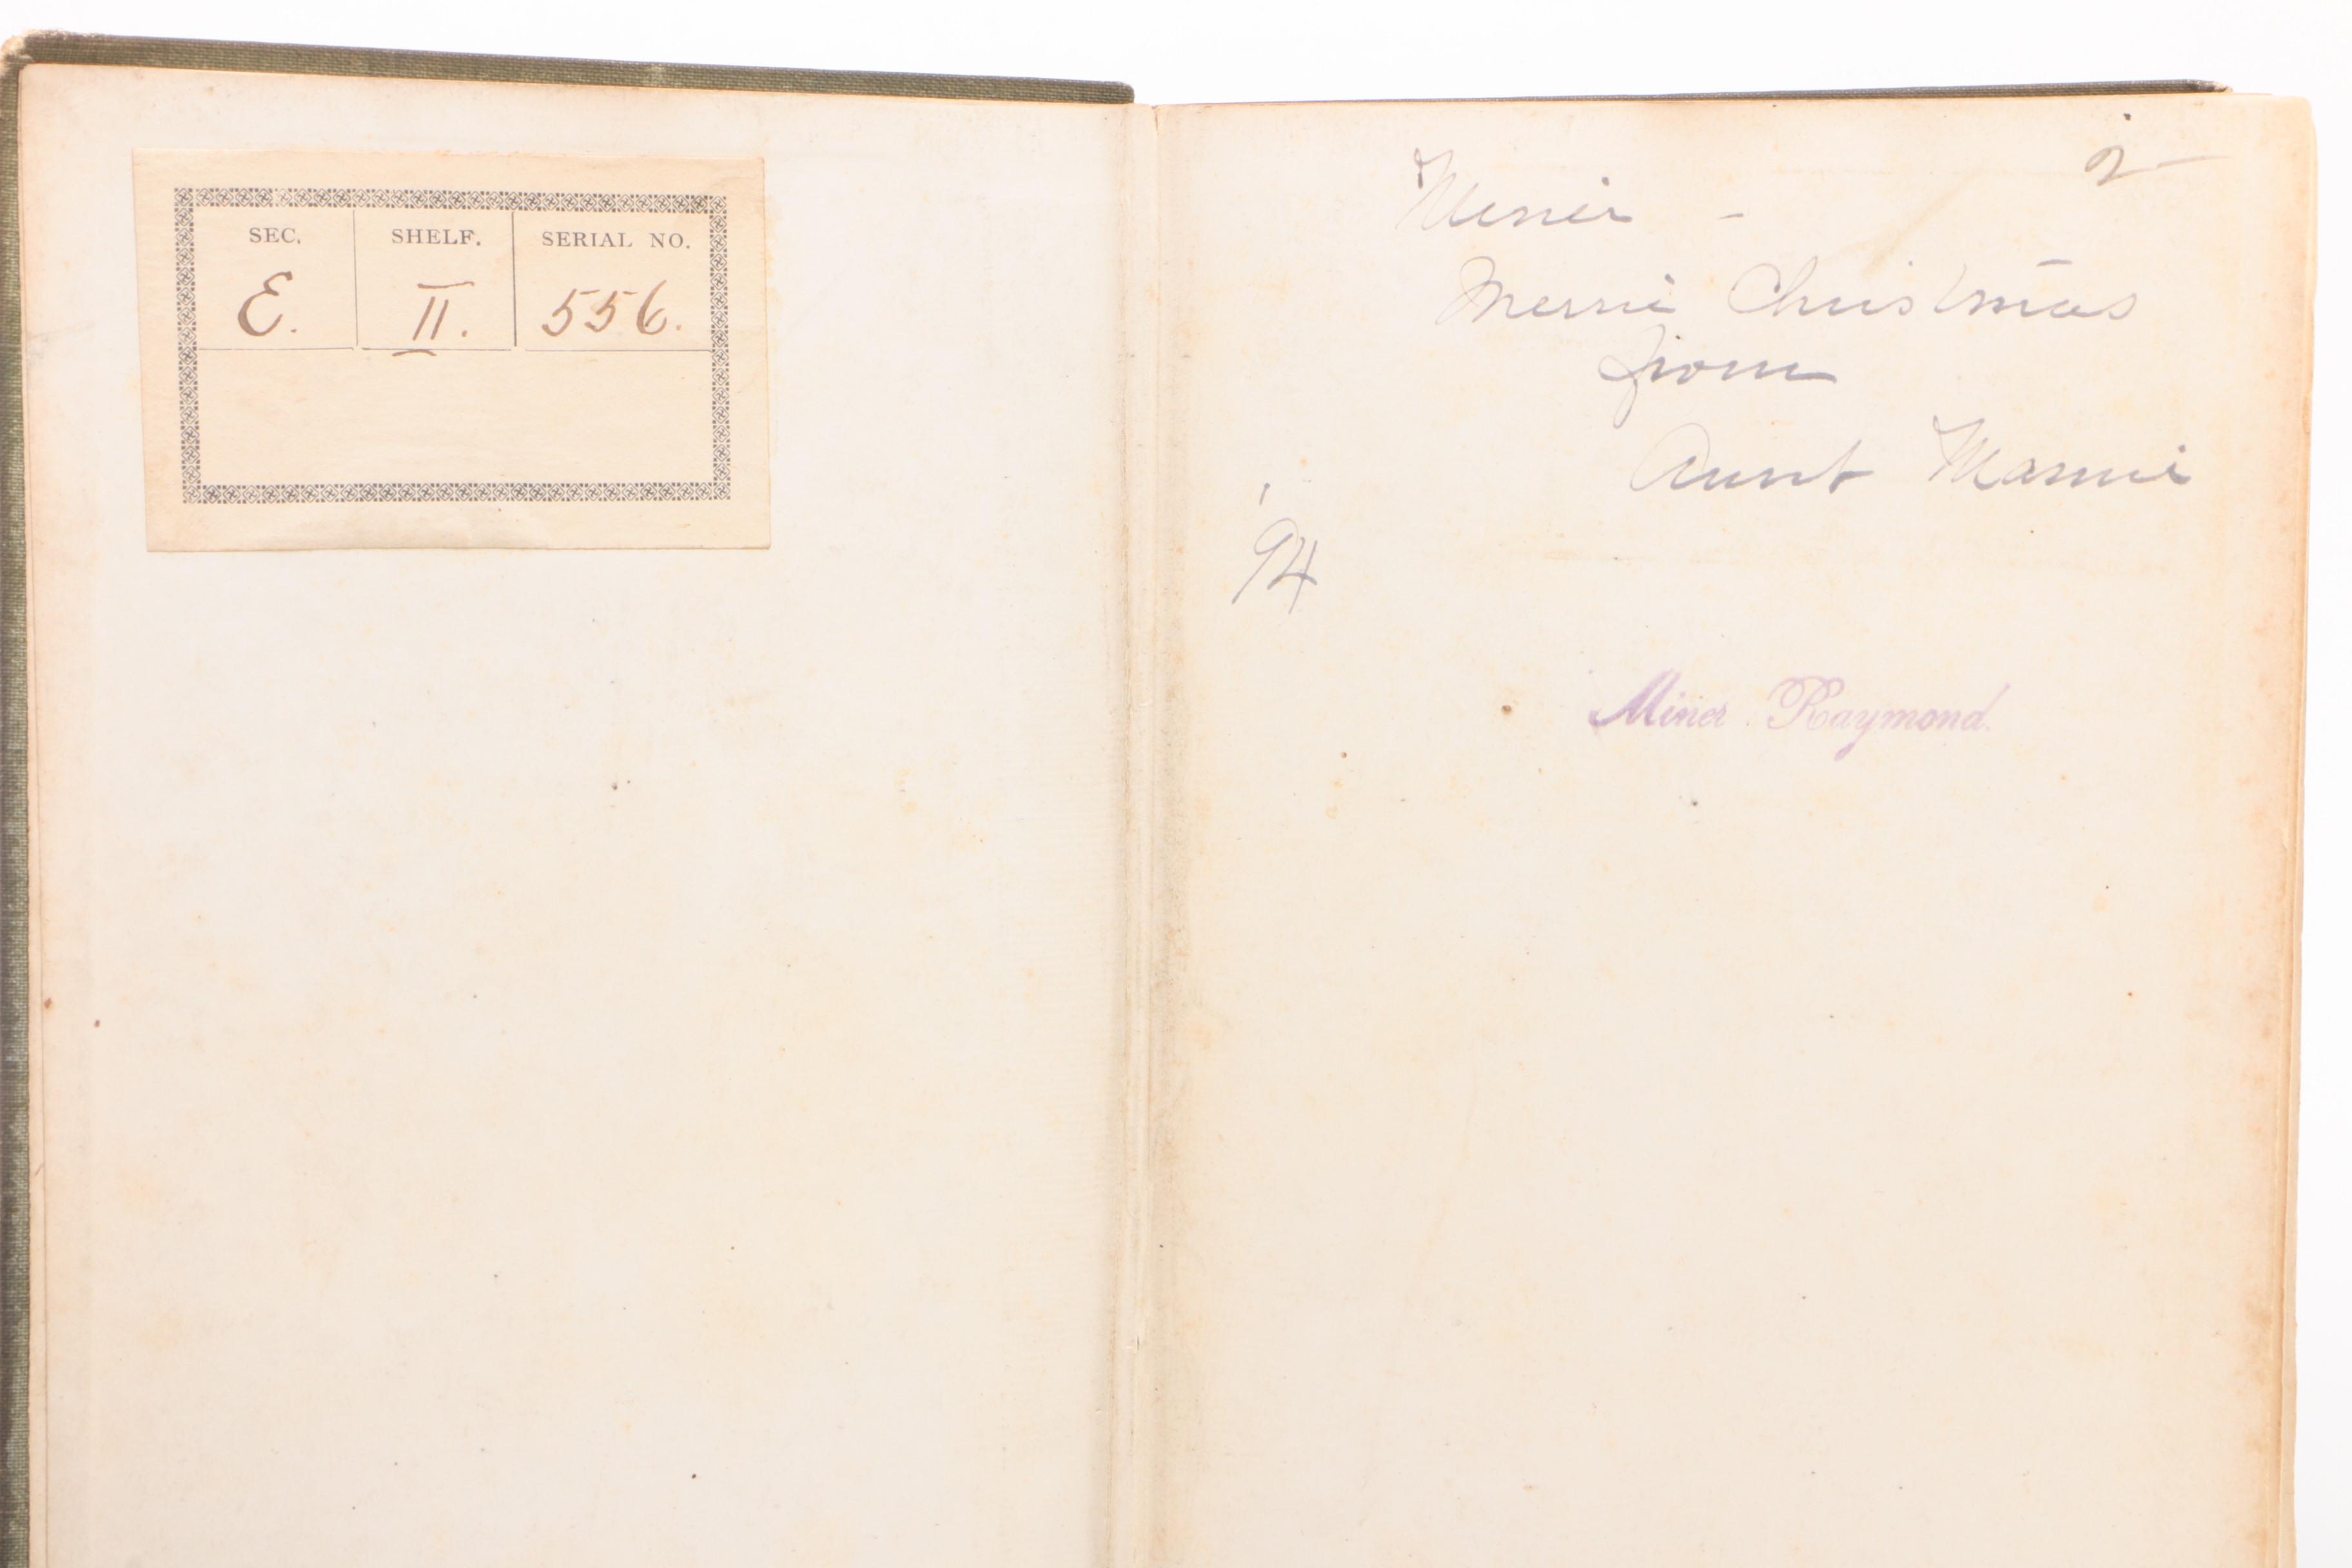 SEC. SHELF. SERIAL NO.
E. II. 556.
2
Miner -
Merrie Christmas
from
Aunt Mamie
'94
Miner Raymond.